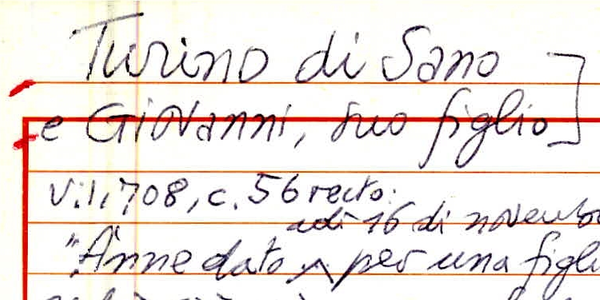 Turino di Sano
e Giovanni, suo figlio]
V.I, 708, c. 56 recto:
adì 16 di novemb
"Ànne dato ^ per una figli